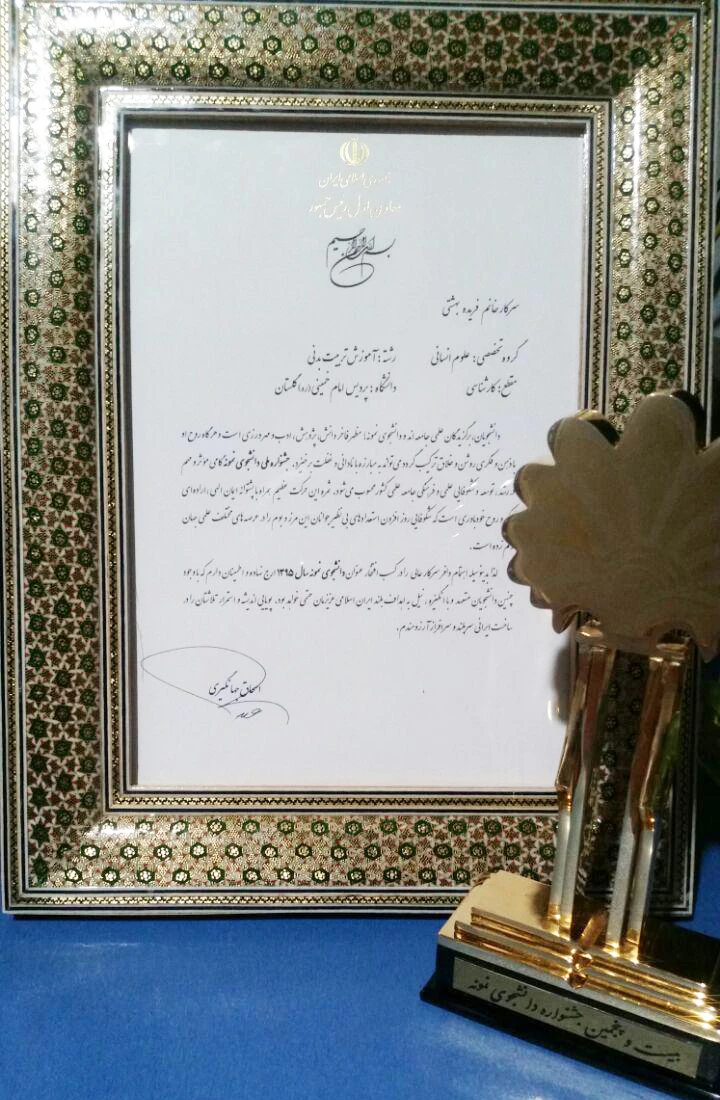 جمهوری اسلامی ایران
معاون اول رئیس جمهور
بسم الله الرحمن الرحیم
سرکار خانم فریده بهشتی
گروه تخصصی: علوم انسانی رشته: آموزش تربیت بدنی
مقطع: کارشناسی دانشگاه: پردیس امام خمینی(ره) گلستان
دانشجویان، برگزیدگان علمی جامعه اند و دانشجوی نمونه؛ مظهر فاخر دانش، پژوهش، ادب و مهرورزی است و هرگاه روح او
با ذهن و فکری روشن و خلاق ترکیب گردد می تواند به مبارزه با نادانی و غفلت برخیزد. جشنواره ملی دانشجوی نمونه گامی مؤثر و مهم
توسعه و شکوفایی علمی و فرهنگی جامعه علمی کشور محسوب می شود. ثمره این حرکت عظیم همراه با پشتوانه ایمان الهی، اراده ای
روح خودباوری است که شکوفایی روز افزون استعدادهای بی نظیر جوانان این مرز و بوم را در عرصه های مختلف علمی جهان
زده است.
لذا بدینوسیله اهتمام وافر سرکار عالی را در کسب افتخار عنوان دانشجوی نمونه سال ۱۳۹۵ ارج نهاده و اطمینان دارم که با وجود
چنین دانشجویان متعهد و با انگیزه، نیل به اهداف بلند ایران اسلامی عزیزمان حتمی خواهد بود. پویایی اندیشه و استمرار تلاشتان را در
ساخت ایرانی سربلند و سرافراز آرزومندم.
اسحاق جهانگیری
بیست و پنجمین جشنواره دانشجوی نمونه